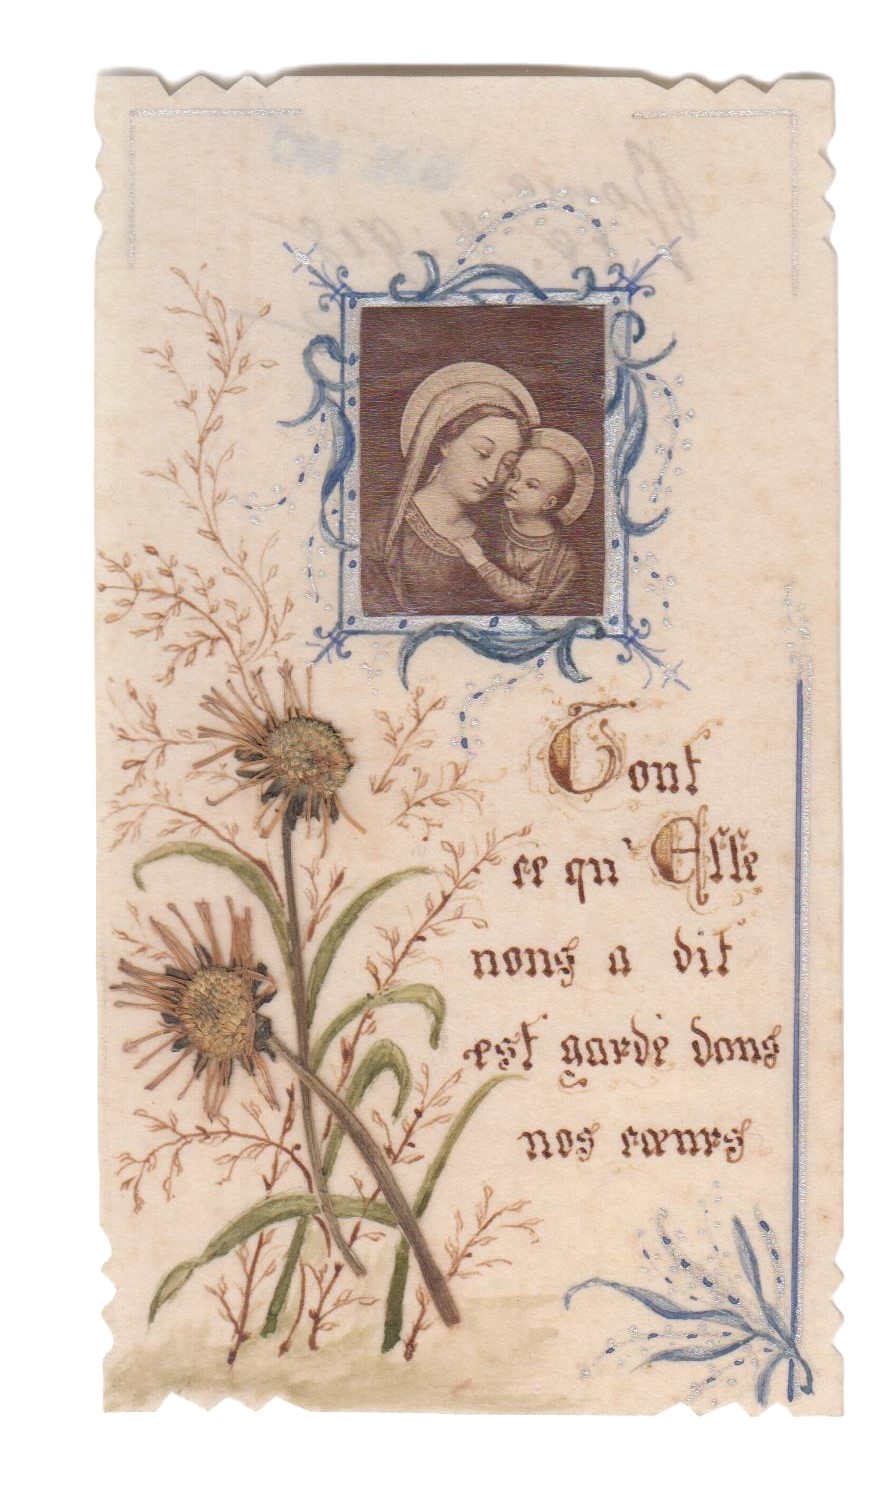 Tout
ce qu'Elle
nous a dit
est gardé dans
nos cœurs